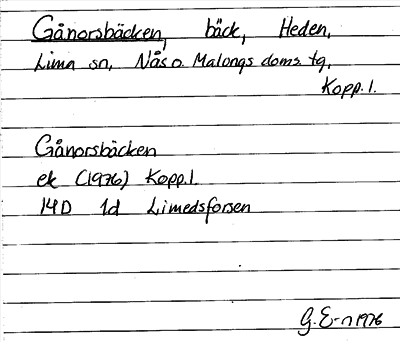 Gånorsbäcken, bäck, Heden,
Lima sn, Nås o. Malungs doms. tg,
Kopp. l.
Gånorsbäcken
ek (1976) Kopp. l.
14D 1d Limedsforsen
G. E-n 1976